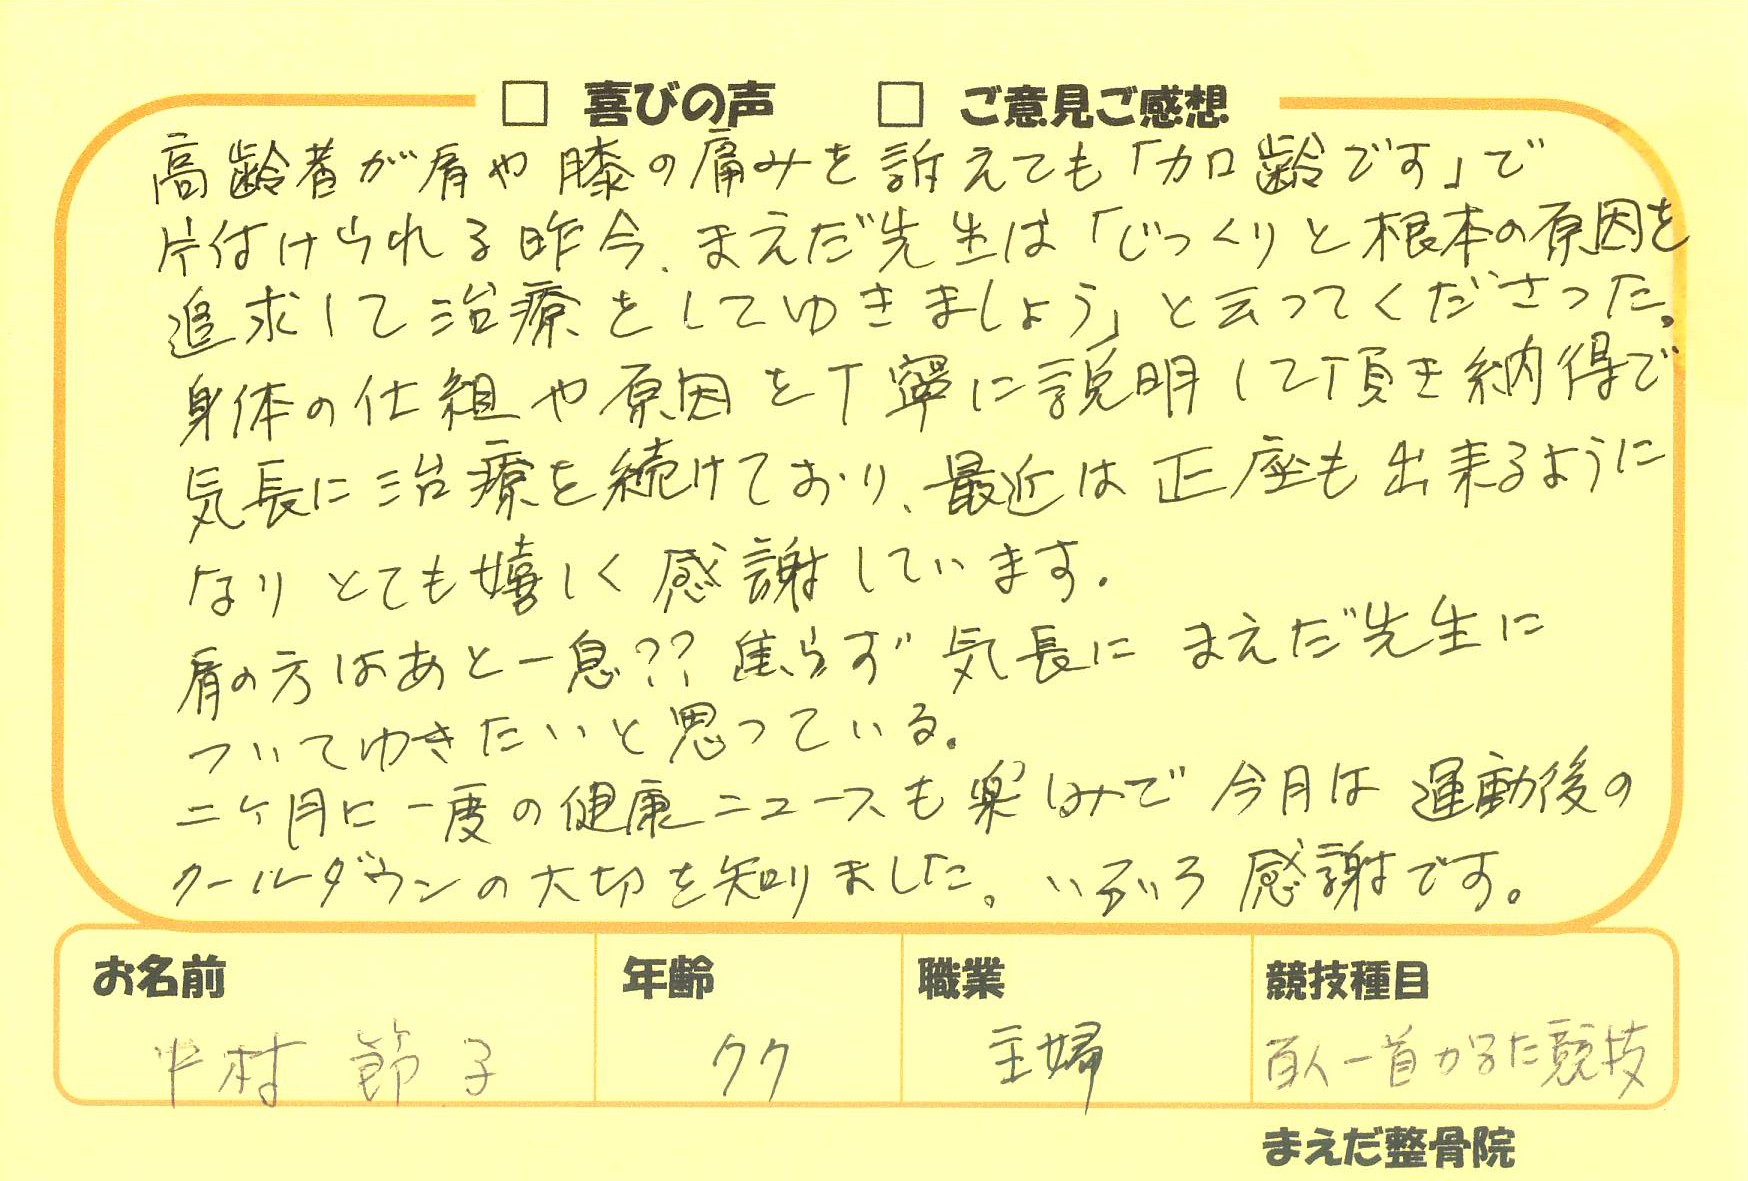 □ 喜びの声 □ ご意見ご感想
高齢者が肩や膝の痛みを訴えても「加齢です」で
片付けられる昨今、まえだ先生は「じっくりと根本の原因を
追求して治療をしてゆきましょう」と云ってくださった。
身体の仕組や原因を丁寧に説明して頂き納得で
気長に治療を続けており、最近は正座も出来るように
なりとても嬉しく感謝しています。
肩の方はあと一息?? 焦らず気長に まえだ先生に
ついてゆきたいと思っている。
二ケ月に一度の健康ニュースも楽しみで 今月は 運動後の
クールダウンの大切を知りました。いろいろ感謝です。
お名前 年齢 職業 競技種目
中村 節子 77 主婦 百人一首かるた競技
まえだ整骨院